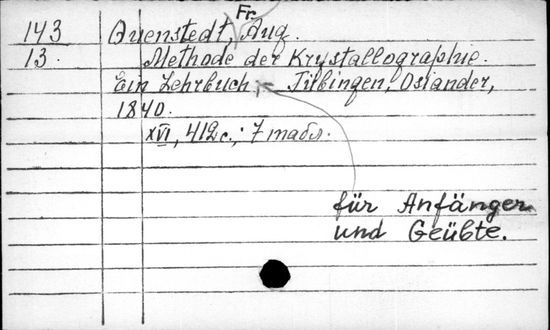 Fr.
143 Quenstedt, Aug.
13. Methode der Krystallographie.
Ein Lehrbuch Tübingen, Osiander,
1840.
XVI, 412 с.; 7 табл.
für Anfänger
und Geübte.